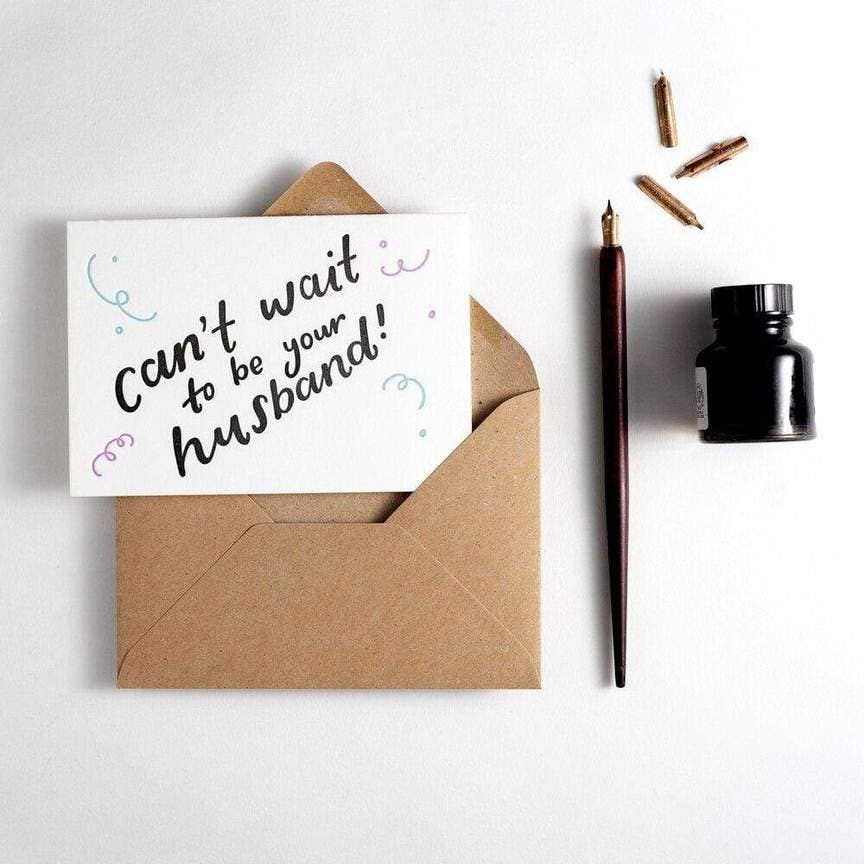 can't wait
to be your
husband!